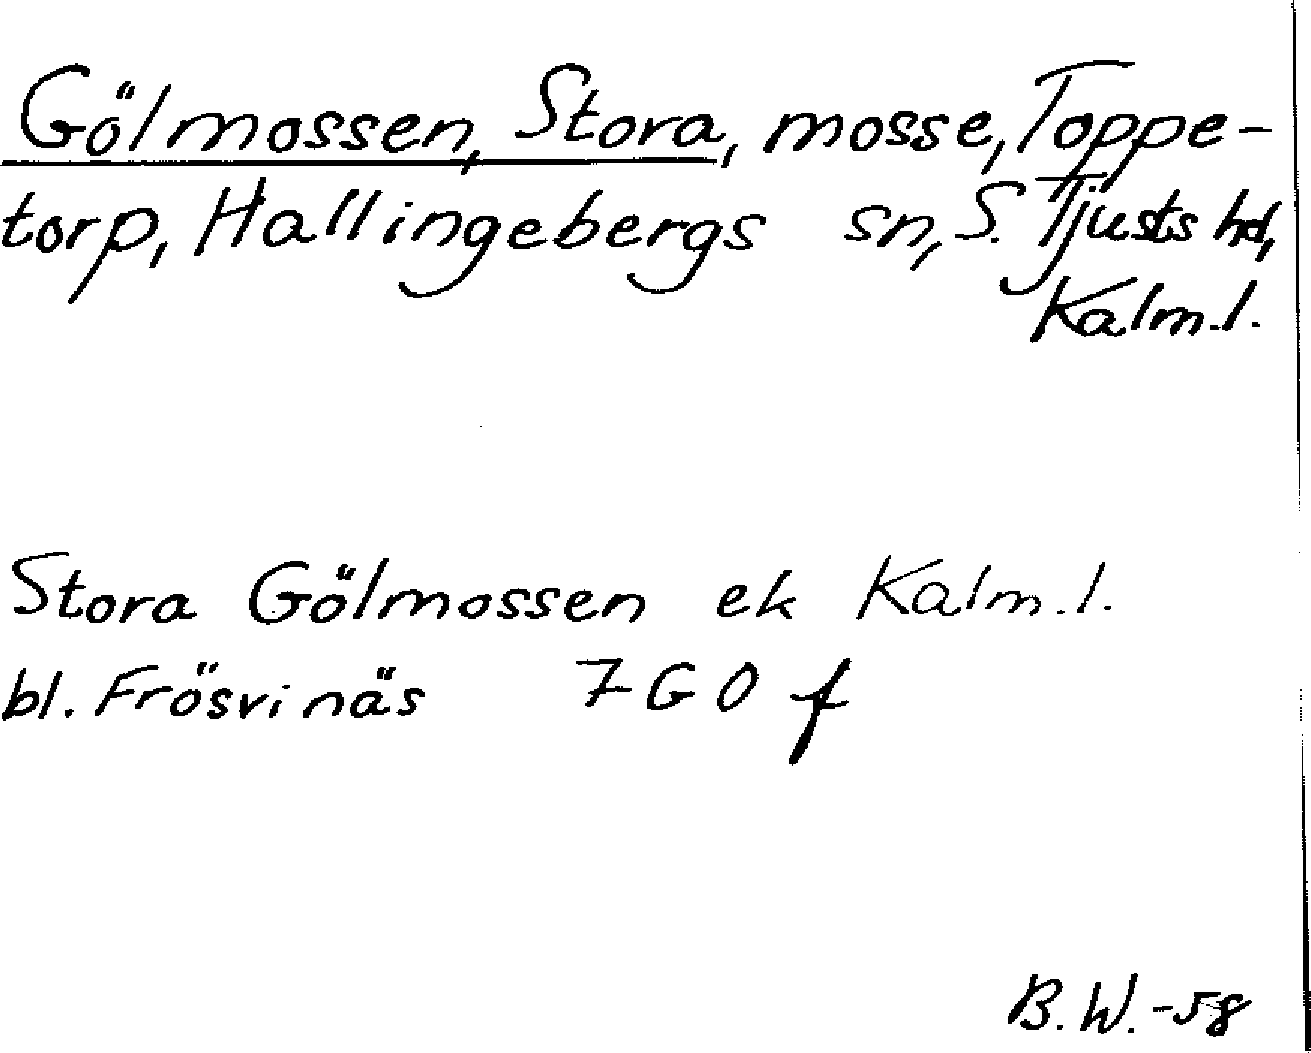 Gölmossen, Stora, mosse, Toppe-
torp, Hallingebergs sn, S. Tjusts hd,
Kalm.l.
Stora Gölmossen ek Kalm.l.
bl. Frösvinäs 7 G 0 f
B.W.-58